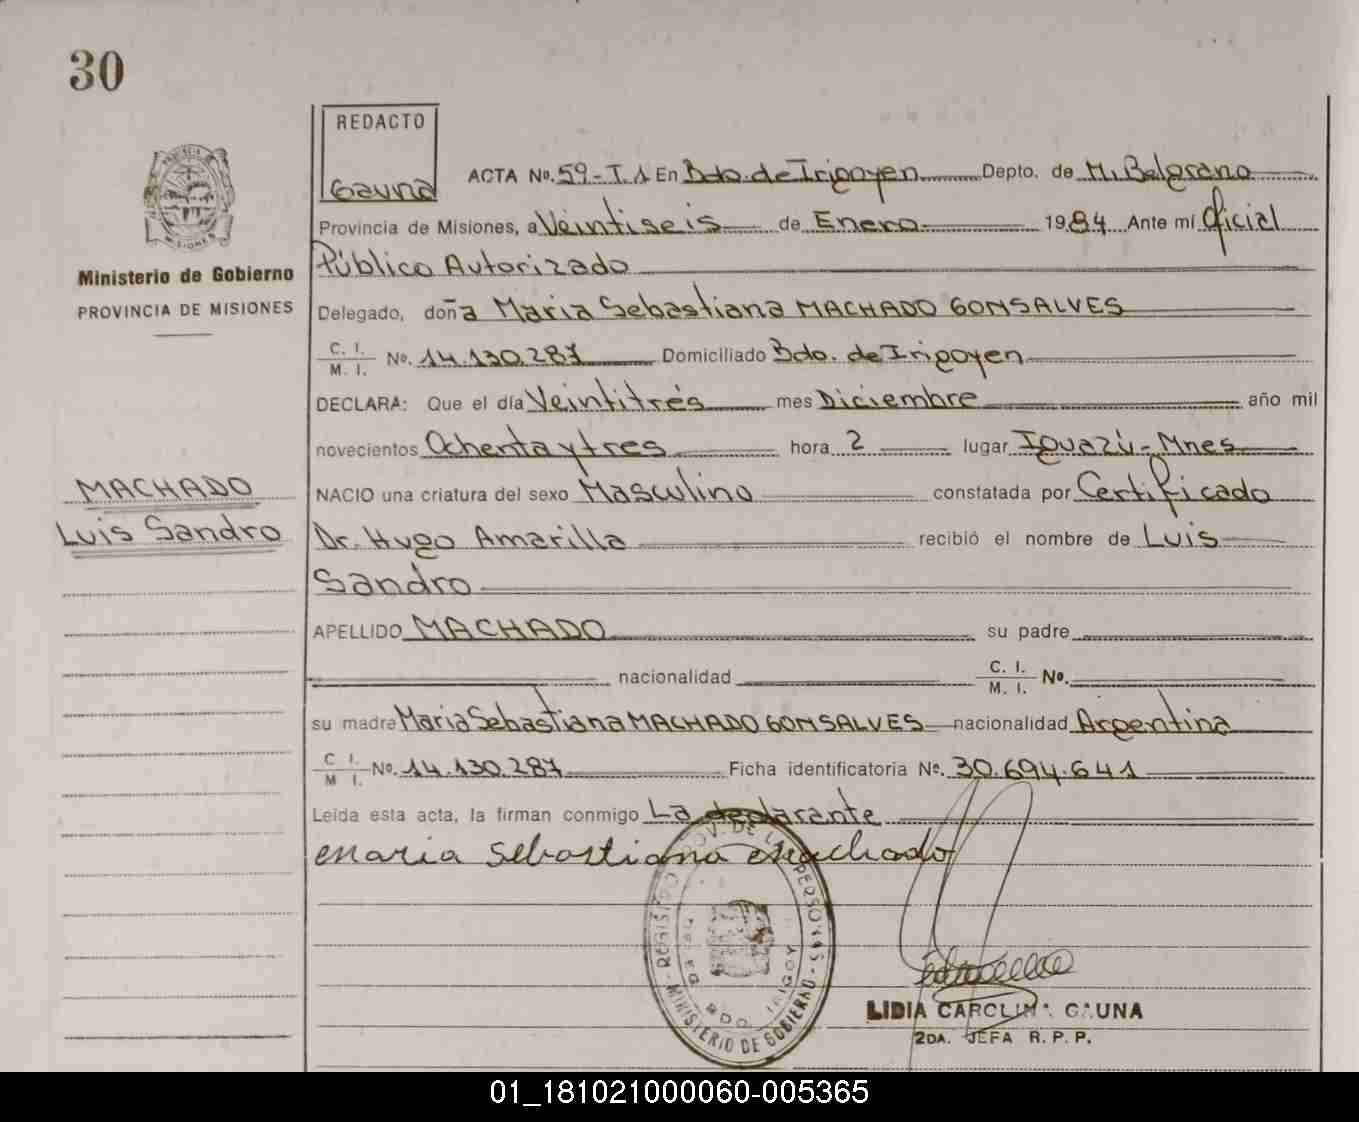 30
REDACTO
Gauna
ACTA No. 59-T.1 En Bdo. de Irigoyen Depto. de M. Belgrano
Provincia de Misiones, a Veintiseis de Enero 1984 Ante mí Oficial
Público Autorizado
Ministerio de Gobierno
PROVINCIA DE MISIONES
Delegado, doña Maria Sebastiana MACHADO GONSALVES
C. I.
M. I. No. 14.130.287 Domiciliado Bdo. de Irigoyen
DECLARA: Que el día Veintitrés mes Diciembre año mil
novecientos Ochenta y tres hora 2 lugar Iguazú-Mnes
MACHADO
Luis Sandro
NACIO una criatura del sexo Masculino constatada por Certificado
Dr. Hugo Amarilla recibió el nombre de Luis
Sandro
APELLIDO MACHADO su padre
nacionalidad C. I.
M. I. No.
su madre Maria Sebastiana MACHADO GONSALVES nacionalidad Argentina
C I.
M I. No. 14.130.287 Ficha identificatoria No. 30.694.641
Leída esta acta, la firman conmigo La declarante
Maria Sebastiana Machado
REGISTRO PROV. DE L PERSONAS - MINISTERIO DE GOBIERNO -
BDO. IRIGOY
LIDIA CAROLINA GAUNA
2DA. JEFA R. P. P.
01_181021000060-005365